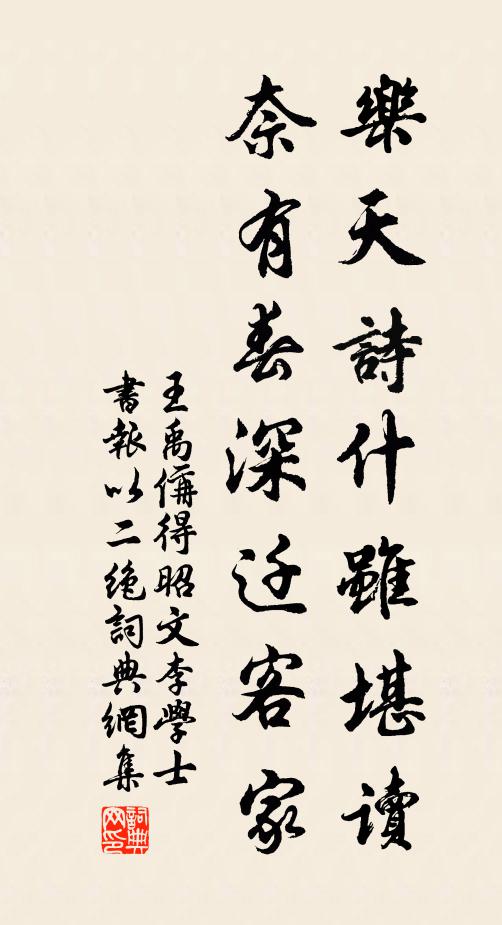 樂天詩什雖堪讀
奈有春深迁客家
王禹偁得昭文李學士
書報以二絶詞典網集
詞典網印